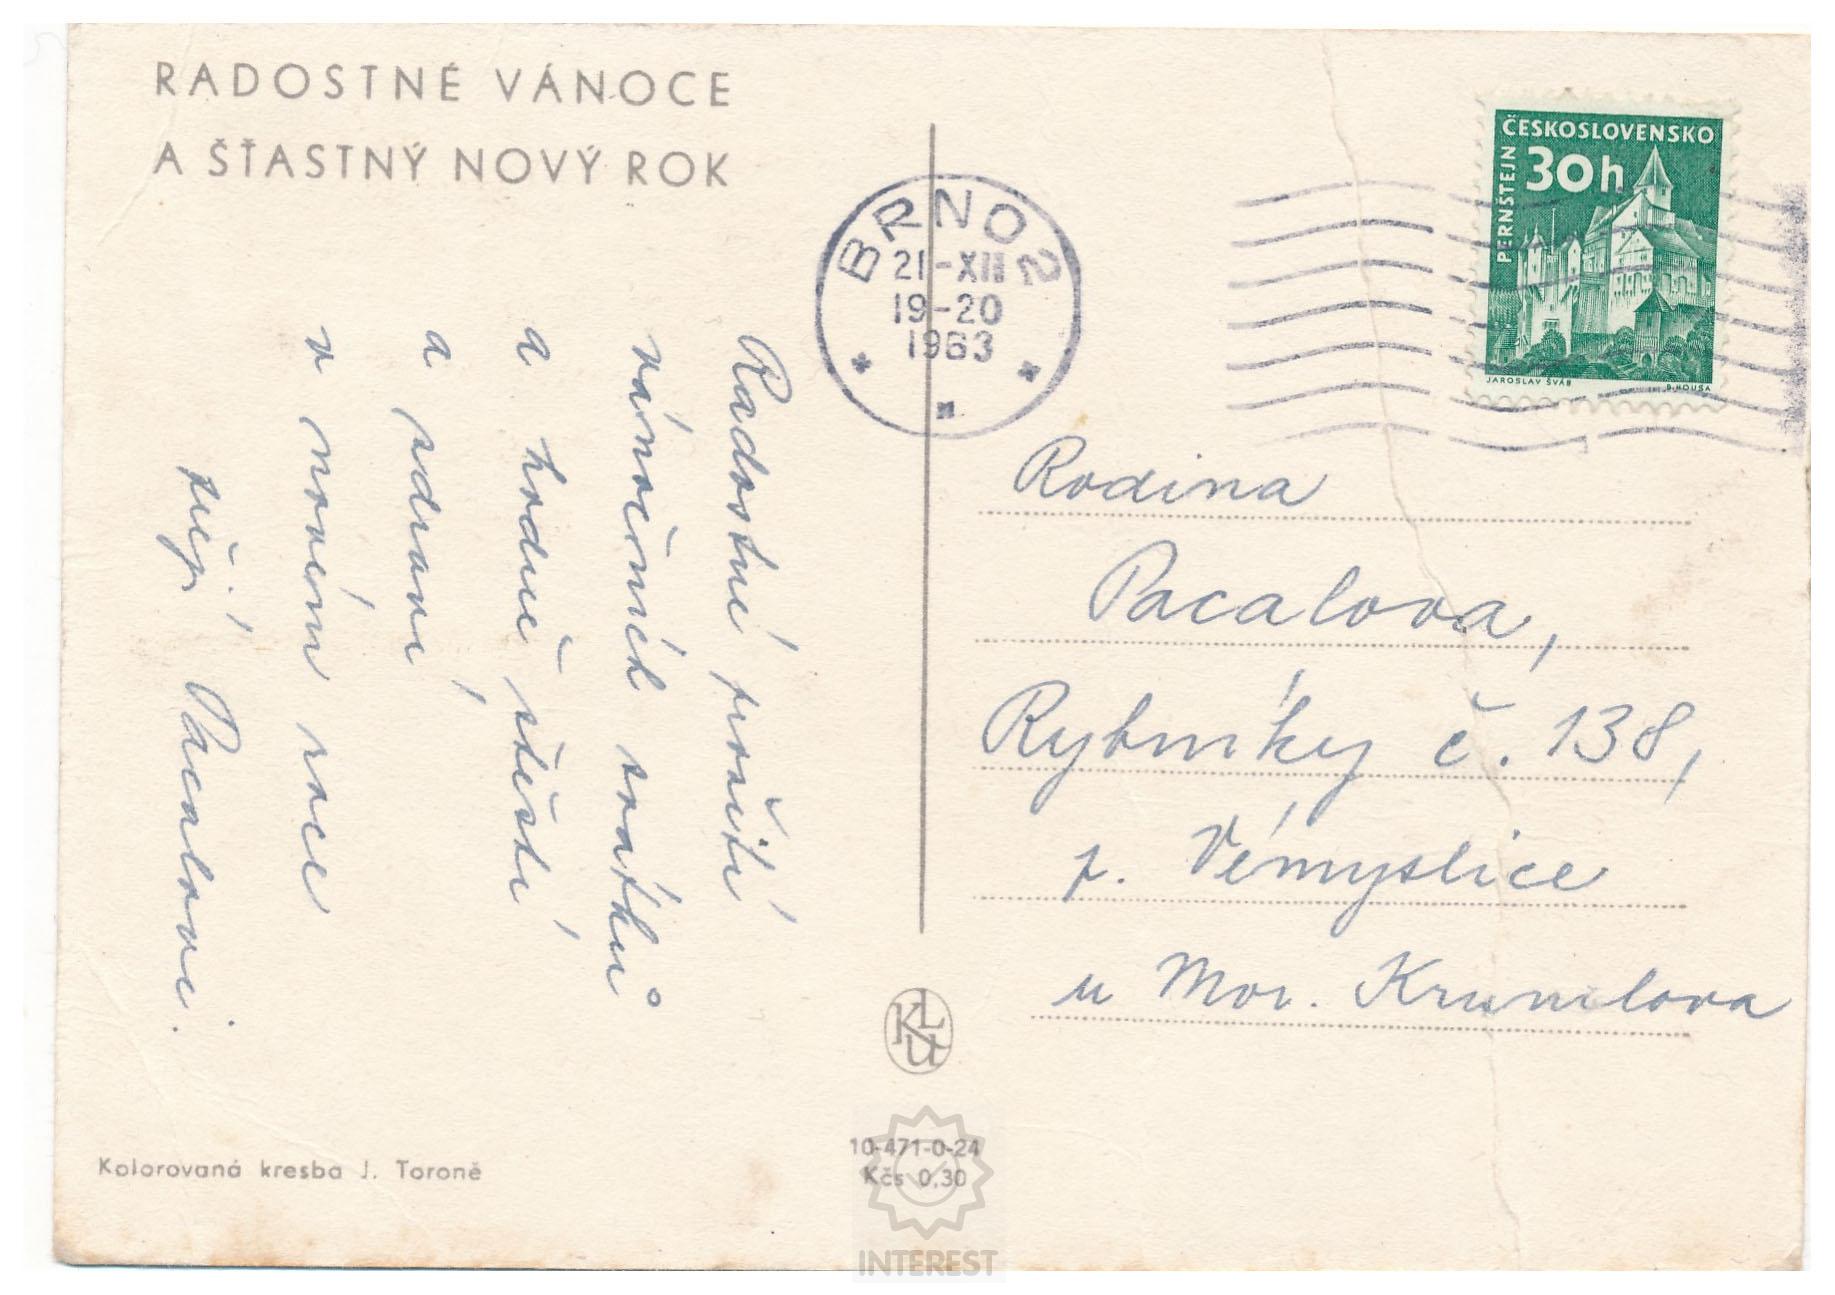 RADOSTNÉ VÁNOCE
A ŠŤASTNÝ NOVÝ ROK
Radostné prožití
vánočních svátků
a hodně štěstí
a zdraví
v novém roce
přejí Pacalovi.
Kolorovaná kresba J. Toroně
BRNO 2
21-XII
19-20
1963
ČESKOSLOVENSKO
PERNŠTEJN
30h
JAROSLAV ŠVÁB
B. HOUSA
Rodina
Pacalova,
Rybníky č. 138,
p. Vémyslice
u Mor. Krumlova
KLU
10-471-0-24
Kčs 0,30
INTEREST